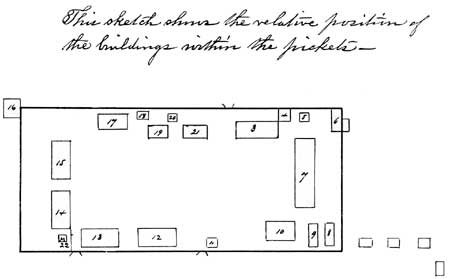 This sketch shows the relative position of
the buildings within the pickets—
16
17
18
20
19
21
3
4
5
6
15
7
14
22
13
12
10
9
8